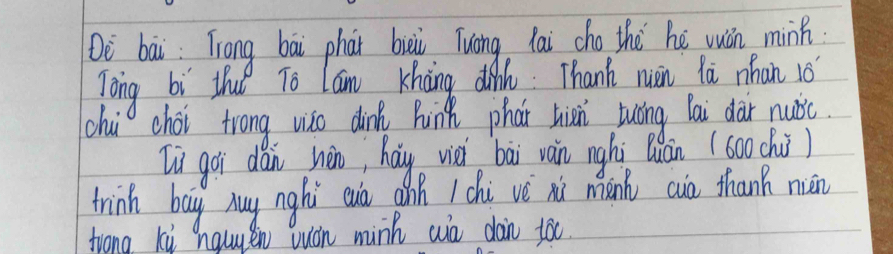 Đề bài: Trong bài phát biểu Tương lai cho thế hệ vươn mình:
Tổng bí thư Tô Lâm khẳng định: Thanh niên là nhân tố
chủ chốt trong việc định hình phát triển tương lai đất nước.
Từ gợi dẫn trên, hãy viết bài văn nghị luận (600 chữ)
trình bày suy nghĩ của anh / chị về sứ mệnh của thanh niên
trong kỷ nguyên vươn mình của dân tộc.